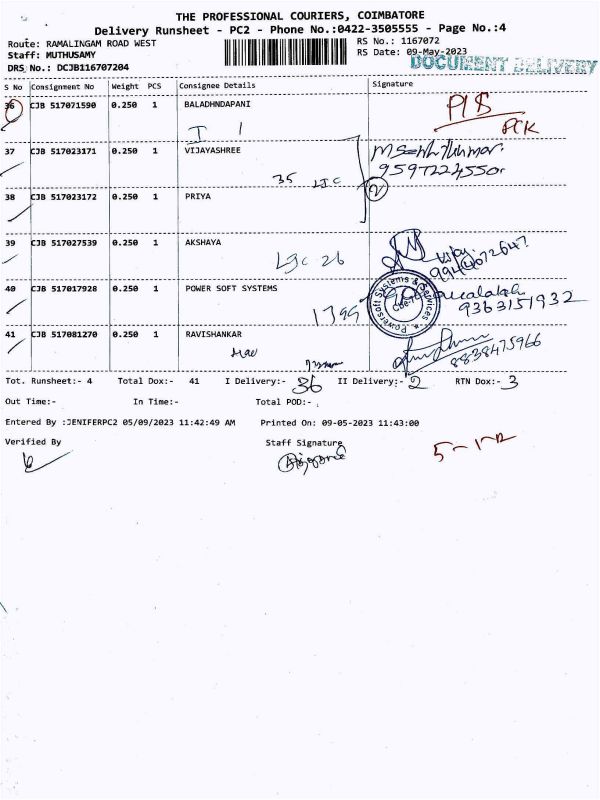 THE PROFESSIONAL COURIERS, COIMBATORE
Delivery Runsheet - PC2 - Phone No.:0422-3505555 - Page No.:4
Route: RAMALINGAM ROAD WEST
RS No.: 1167072
Staff: MUTHUSAMY
RS Date: 09-May-2023
DRS No.: DCJB116707204
DOCUMENT DELIVERY
S No Consignment No Weight PCS Consignee Details Signature
36 CJB 517071590 0.250 1 BALADHNDAPANI
P/S
PCK
37 CJB 517023171 0.250 1 VIJAYASHREE
35 LIC
9597224550
38 CJB 517023172 0.250 1 PRIYA
2
39 CJB 517027539 0.250 1 AKSHAYA
LIC 26
9944072647
40 CJB 517017928 0.250 1 POWER SOFT SYSTEMS
1399
Powersoft Systems & Services
Cbe
9363151932
41 CJB 517081270 0.250 1 RAVISHANKAR
8838475966
Tot. Runsheet:- 4 Total Dox:- 41 I Delivery:- 36 II Delivery:- 2 RTN Dox:- 3
Out Time:- In Time:- Total POD:-
Entered By :JENIFERPC2 05/09/2023 11:42:49 AM Printed On: 09-05-2023 11:43:00
Verified By Staff Signature